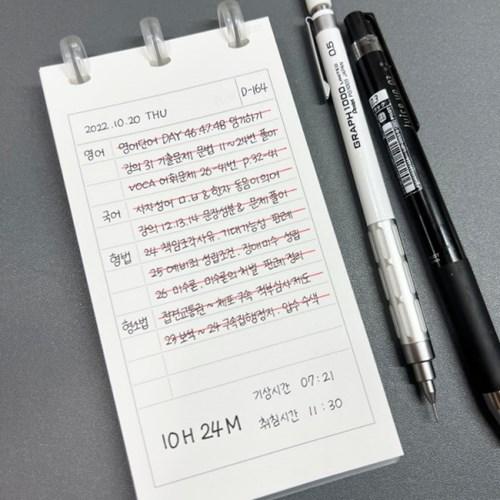 D-164
2022.10.20 THU
영어 영어단어 DAY 46.47.48 암기하기
강의 31 기출문제 문법 11~24번 풀이
VOCA 어휘문제 26-41번 p.32-41
국어 사자성어 ㅁ.ㅂ & 한자 동음이의어
강의 12.13.14 문장성분 & 문제풀이
형법 24 책임조각사유. 기대가능성 판례
25 예비죄 성립조건. 장애미수 성립
26 미수론. 미수론의 처벌 판례 정리
형소법 접견교통권 ~ 체포 구속 적부심사 제도
23 보석 ~ 24 구속집행정지. 압수 수색
기상시간 07:21
10H 24M 취침시간 11:30
GRAPH1000 LIMITED 0.5
Pentel
juice up 04